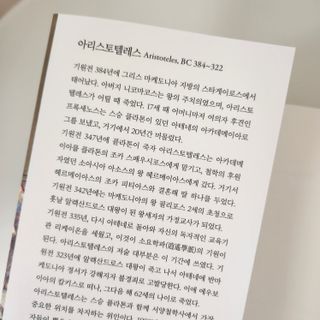 아리스토텔레스 Aristoteles, BC 384~322
기원전 384년에 그리스 마케도니아 지방의 스타게이로스에서
태어났다. 아버지 니코마코스는 왕의 주치의였으며, 아리스토
텔레스가 어릴 때 죽었다. 17세 때 어머니마저 여의자 후견인
프록세노스는 스승 플라톤이 있던 아테네의 아카데메이아로
그를 보냈고, 거기에서 20년간 머물렀다.
기원전 347년에 플라톤이 죽자 아리스토텔레스는 아카데메
이아를 플라톤의 조카 스페우시포스에게 맡기고, 철학의 후원
자였던 소아시아 아소스의 왕 헤르메이아스에게 갔다. 거기서
헤르메이아스의 조카 피티아스와 결혼해 딸 하나를 두었다.
기원전 342년에는 마케도니아의 왕 필리포스 2세의 초청으로
훗날 알렉산드로스 대왕이 된 왕세자의 가정교사가 되었다.
기원전 335년, 다시 아테네로 돌아와 자신의 독자적인 교육기
관 리케이온을 세웠고, 이것이 소요학파(逍遙學派)의 기원이
된다. 아리스토텔레스의 저술 대부분은 이 기간에 쓰였다. 기
원전 323년에 알렉산드로스 대왕이 죽고 나서 아테네에 반마
케도니아 정서가 강해지자 불경죄로 고발당한다. 이에 에우보
이아의 칼키스로 떠나, 그다음 해 62세의 나이로 죽었다.
아리스토텔레스는 스승 플라톤과 함께 서양철학사에서 가장
중요한 위치를 차지하는 위인이다.